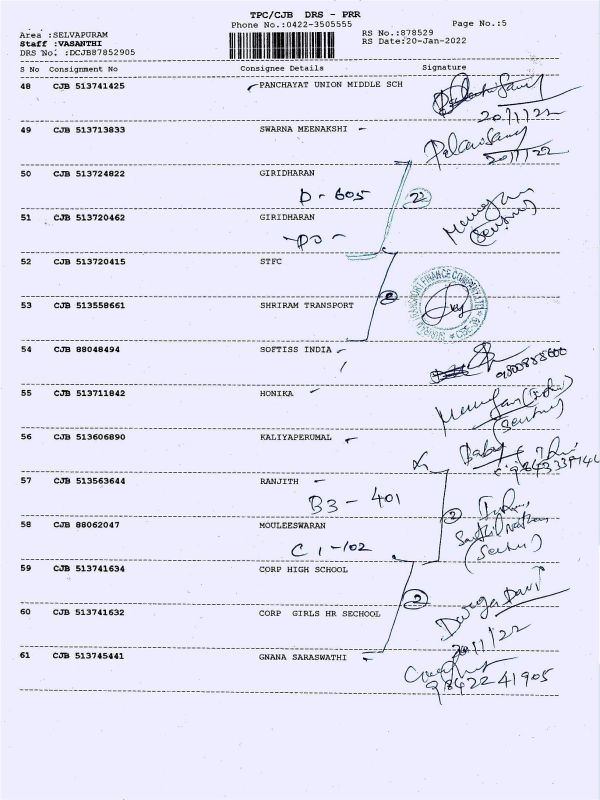 TPC/CJB DRS - PRR
Phone No.:0422-3505555
Page No.:5
Area :SELVAPURAM
Staff :VASANTHI
DRS No. :DCJB87852905
RS No.:878529
RS Date:20-Jan-2022
S No Consignment No Consignee Details Signature
48 CJB 513741425 PANCHAYAT UNION MIDDLE SCH
20/1/22
49 CJB 513713833 SWARNA MEENAKSHI
20/1/22
50 CJB 513724822 GIRIDHARAN
D - 605
22
51 CJB 513720462 GIRIDHARAN
- DO -
52 CJB 513720415 STFC
53 CJB 513558661 SHRIRAM TRANSPORT
2
54 CJB 88048494 SOFTISS INDIA
55 CJB 513711842 HONIKA
56 CJB 513606890 KALIYAPERUMAL
57 CJB 513563644 RANJITH
B3 - 401
2
58 CJB 88062047 MOULEESWARAN
C1 - 102
59 CJB 513741634 CORP HIGH SCHOOL
2
60 CJB 513741632 CORP GIRLS HR SECHOOL
Durga Devi
20/1/22
61 CJB 513745441 GNANA SARASWATHI
98422 41905